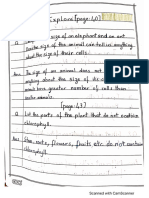 Explore [page: 40]
size of an elephant and an ant
the size of the animal can tell us anything
about the size of their cells.
size of an animal does not
anything about the size of its
has greater number of cells than
animals.
[page: 47]
Q List the parts of the plant that do not contain
chlorophyll.
roots, flowers, fruits etc. do not contain
chlorophyll.
Scanned with CamScanner